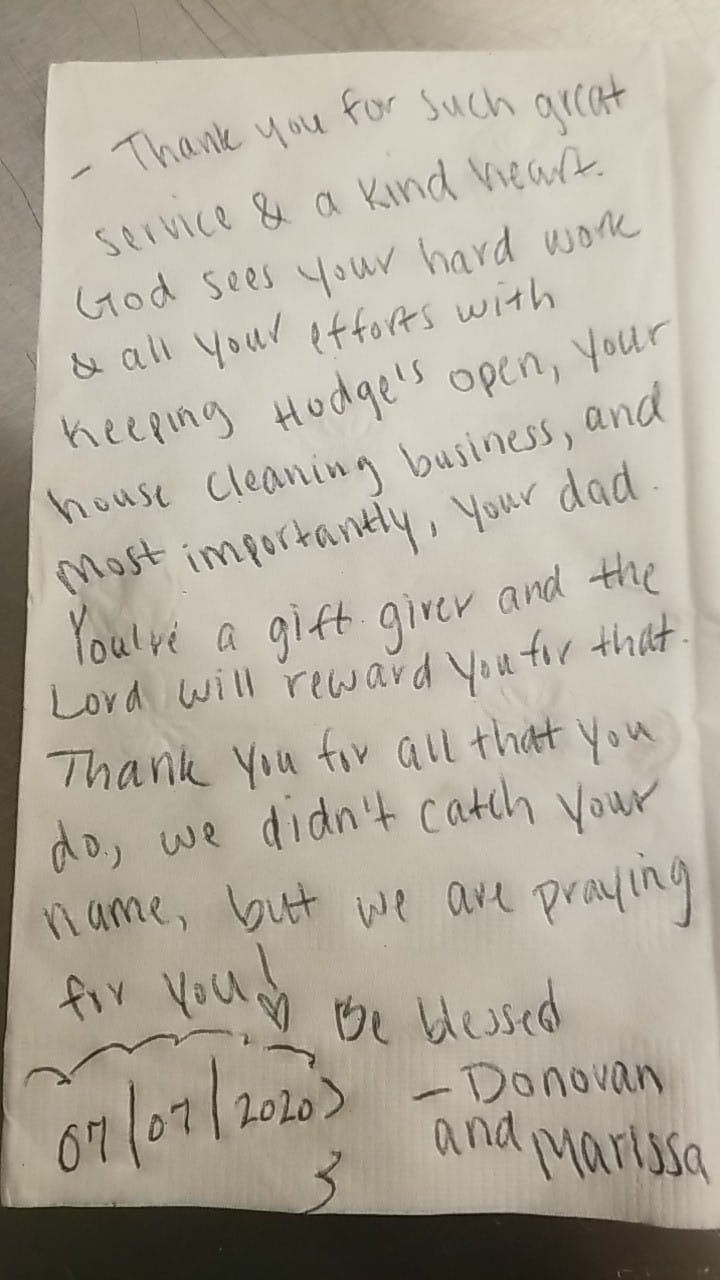 - Thank you for such great
service & a kind heart.
God sees your hard work
& all your efforts with
keeping Hodge's open, your
house cleaning business, and
most importantly, your dad.
You're a gift giver and the
Lord will reward you for that.
Thank you for all that you
do, we didn't catch your
name, but we are praying
for you! ♡ Be blessed
07/07/2020 - Donovan
and Marissa